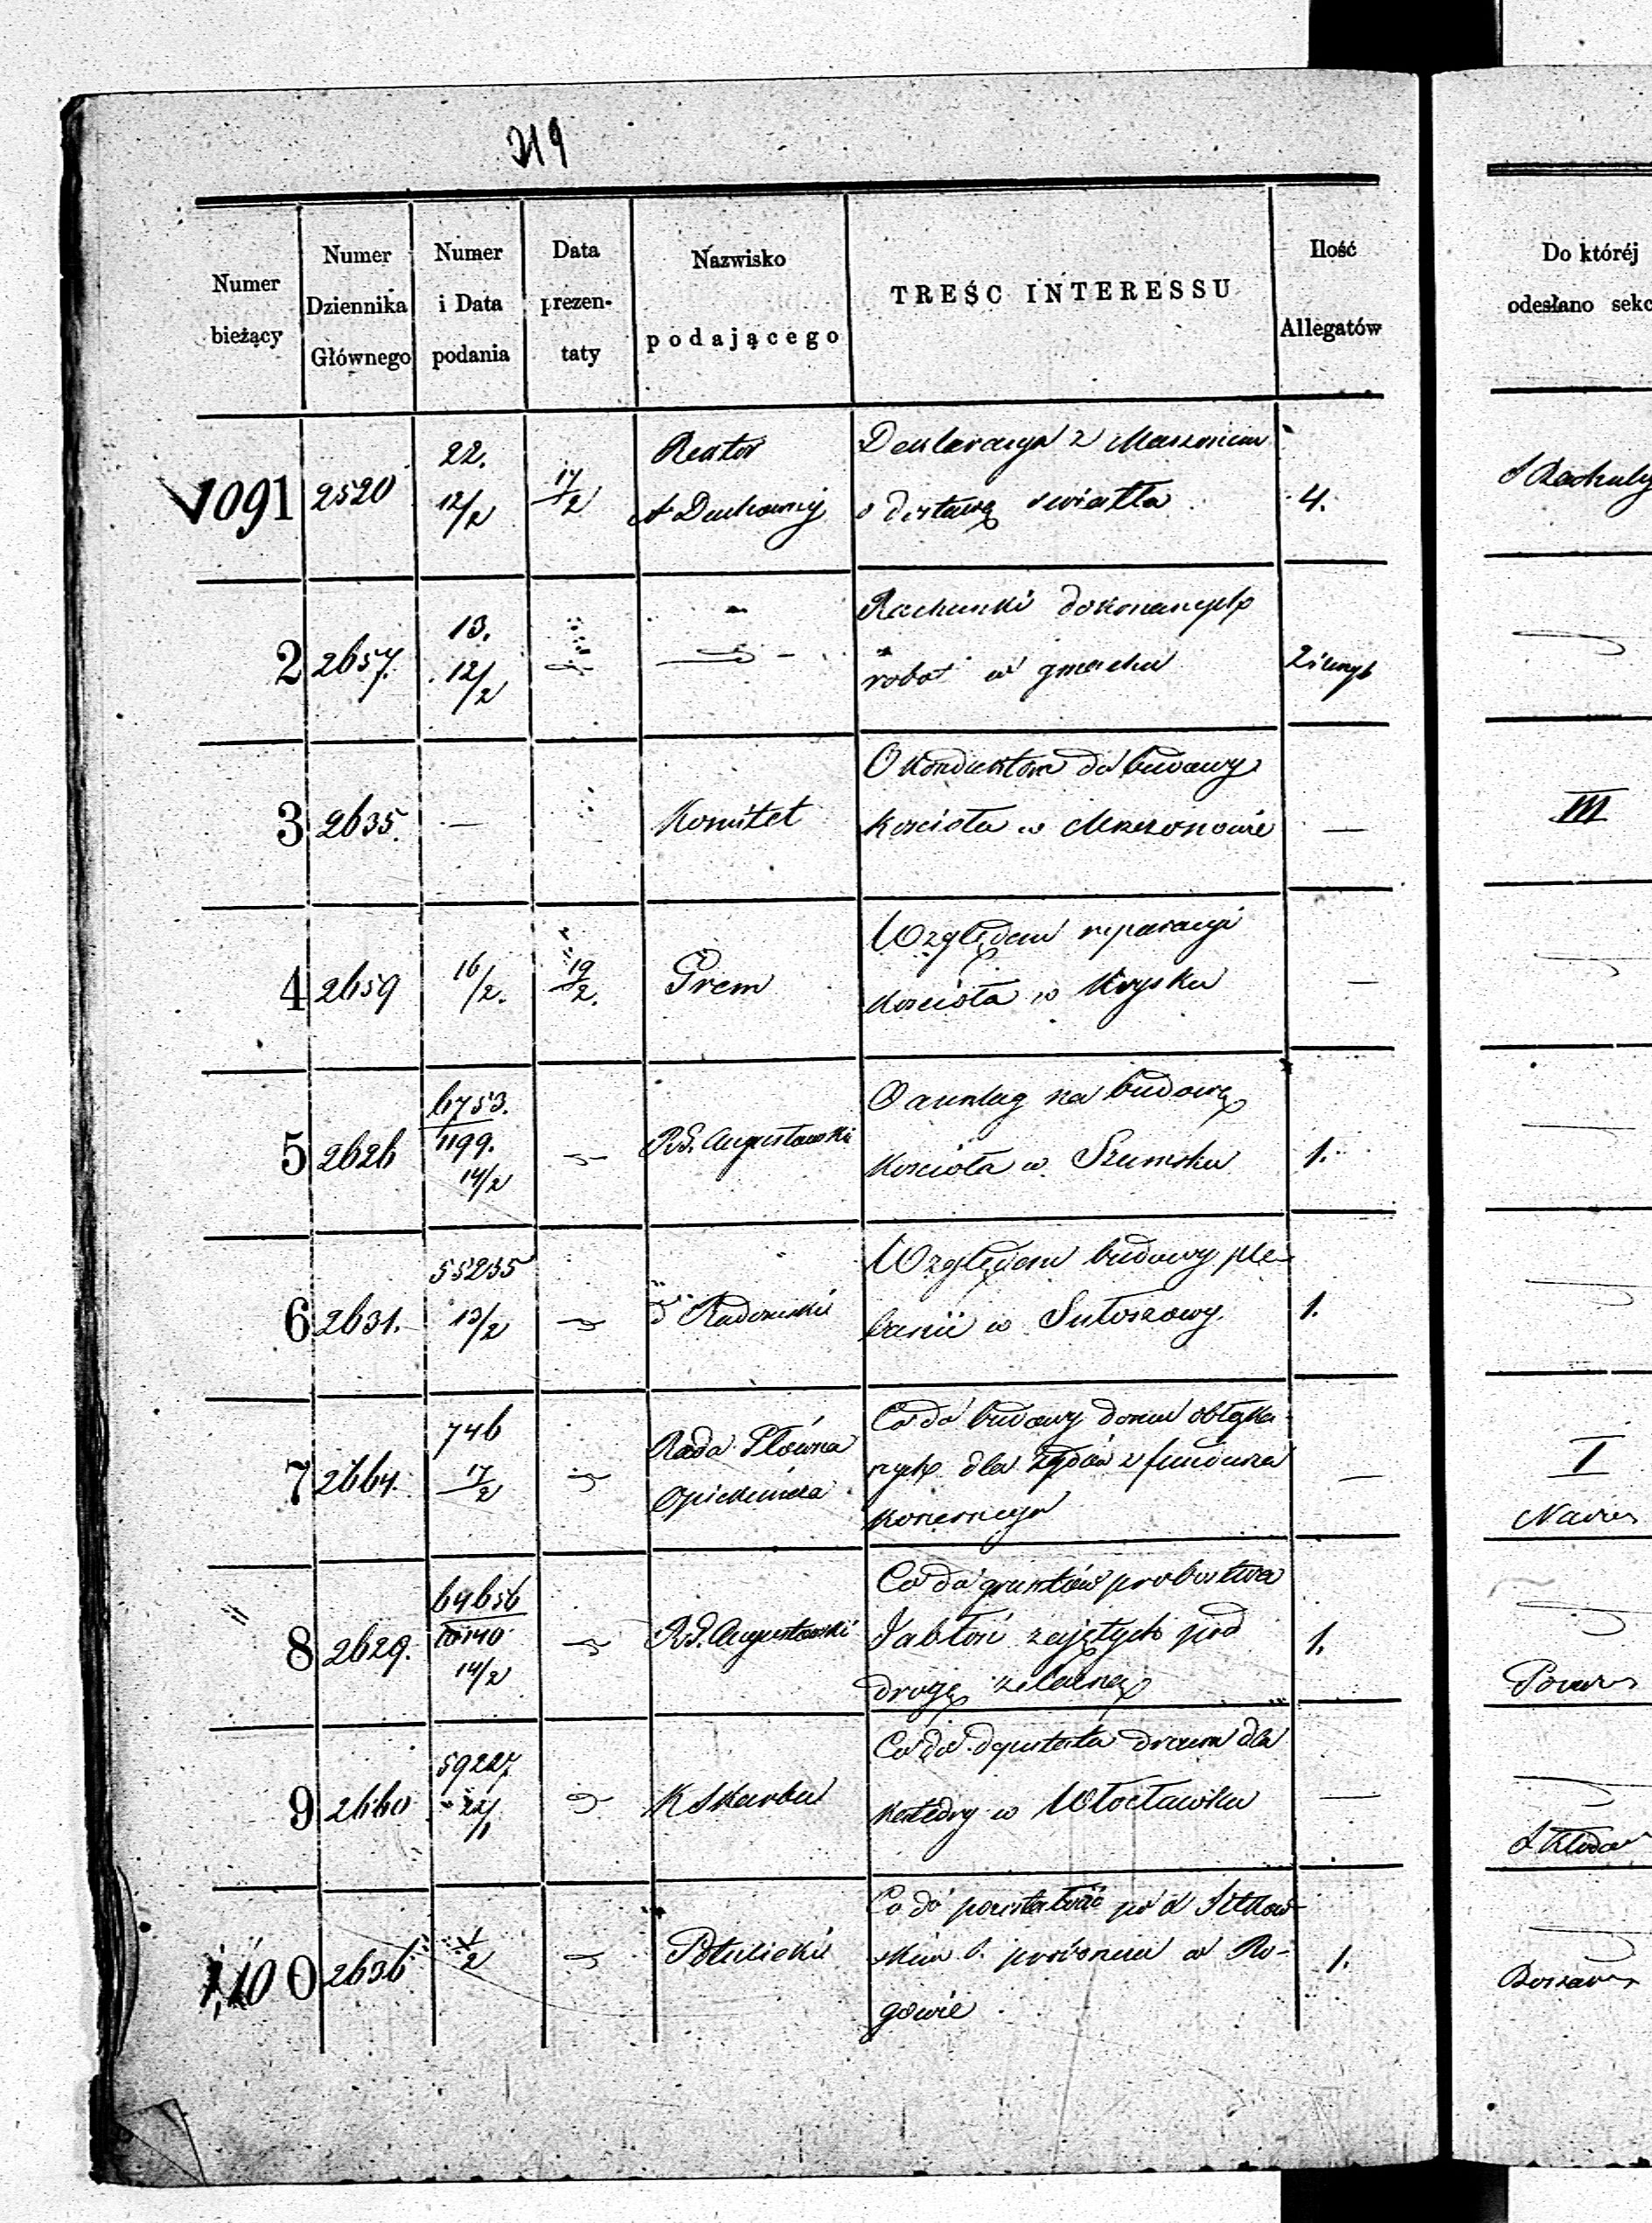 219
Numer bieżący
Numer Dziennika Głównego
Numer i Data podania
Data prezen- taty
Nazwisko podającego
TREŚC INTERESSU
Ilość Allegatów
Do któréj
odesłano sekc
1091 2520 22. 12/2 17/2 Rektor A Duchownéj
o dostawę światła 4.
2 2657. 13. 12/2
Rachunki dokonanych
robot w gmachu
3 2635. — Komitet
O konduktora do budowy
kościoła w —
III
4 2659 16/2. 19/2. Prem
Względem reparacyi
kościoła w Krysku —
5 2626 6753. 1199. 14/2 R.G. Augustowski
O anszlag na budowę
kościoła w Szumsku 1.
6 2631. 55255 13/2 d° Radomski
Względem budowy ple-
banii w Sułoszowy. 1.
7 2664. 746 17/2 Rada Główna Opiekuńcza
Co do budowy domu obłąka-
nych dla Żydów z funduszu
koszernego —
I
8 2629. 64656 10140 14/2 R.G. Augustowski
Co do gruntów probostwa
Jabłoń zajętych pod
drogę żelazną 1.
9 2660 59227. 22/1 K Skarbu
Co do deputatu drzewa dla
Katedry w Włocławku —
1100 2636 Potulicki
Co do
w Ro-
gowie 1.